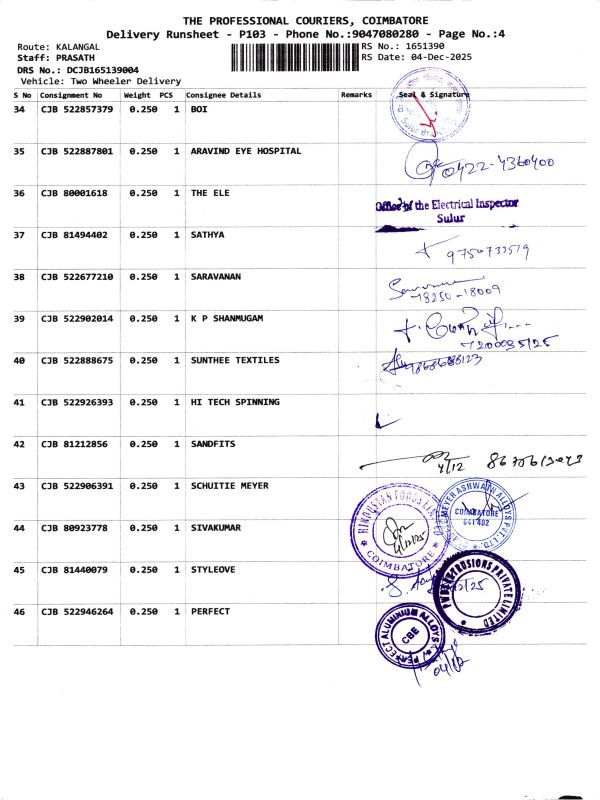 THE PROFESSIONAL COURIERS, COIMBATORE
Delivery Runsheet - P103 - Phone No.:9047080280 - Page No.:4
Route: KALANGAL RS No.: 1651390
Staff: PRASATH RS Date: 04-Dec-2025
DRS No.: DCJB165139004
Vehicle: Two Wheeler Delivery
S No Consignment No Weight PCS Consignee Details Remarks Seal & Signature
34 CJB 522857379 0.250 1 BOI
Sulur
35 CJB 522887801 0.250 1 ARAVIND EYE HOSPITAL
0422-4360400
36 CJB 80001618 0.250 1 THE ELE
Office of the Electrical Inspector
Sulur
37 CJB 81494402 0.250 1 SATHYA
9750733519
38 CJB 522677210 0.250 1 SARAVANAN
78250-18009
39 CJB 522902014 0.250 1 K P SHANMUGAM
40 CJB 522888675 0.250 1 SUNTHEE TEXTILES
41 CJB 522926393 0.250 1 HI TECH SPINNING
42 CJB 81212856 0.250 1 SANDFITS
4/12
43 CJB 522906391 0.250 1 SCHUITIE MEYER
HINDUSTAN FOODS LIMITED
COIMBATORE
MEYER ASHWATH ALLOYS PVT. LTD.
COIMBATORE
641 402
44 CJB 80923778 0.250 1 SIVAKUMAR
4/12/25
45 CJB 81440079 0.250 1 STYLEOVE
PRIVATE LIMITED
46 CJB 522946264 0.250 1 PERFECT
PERFECT ALUMINIUM ALLOYS
CBE
04/12